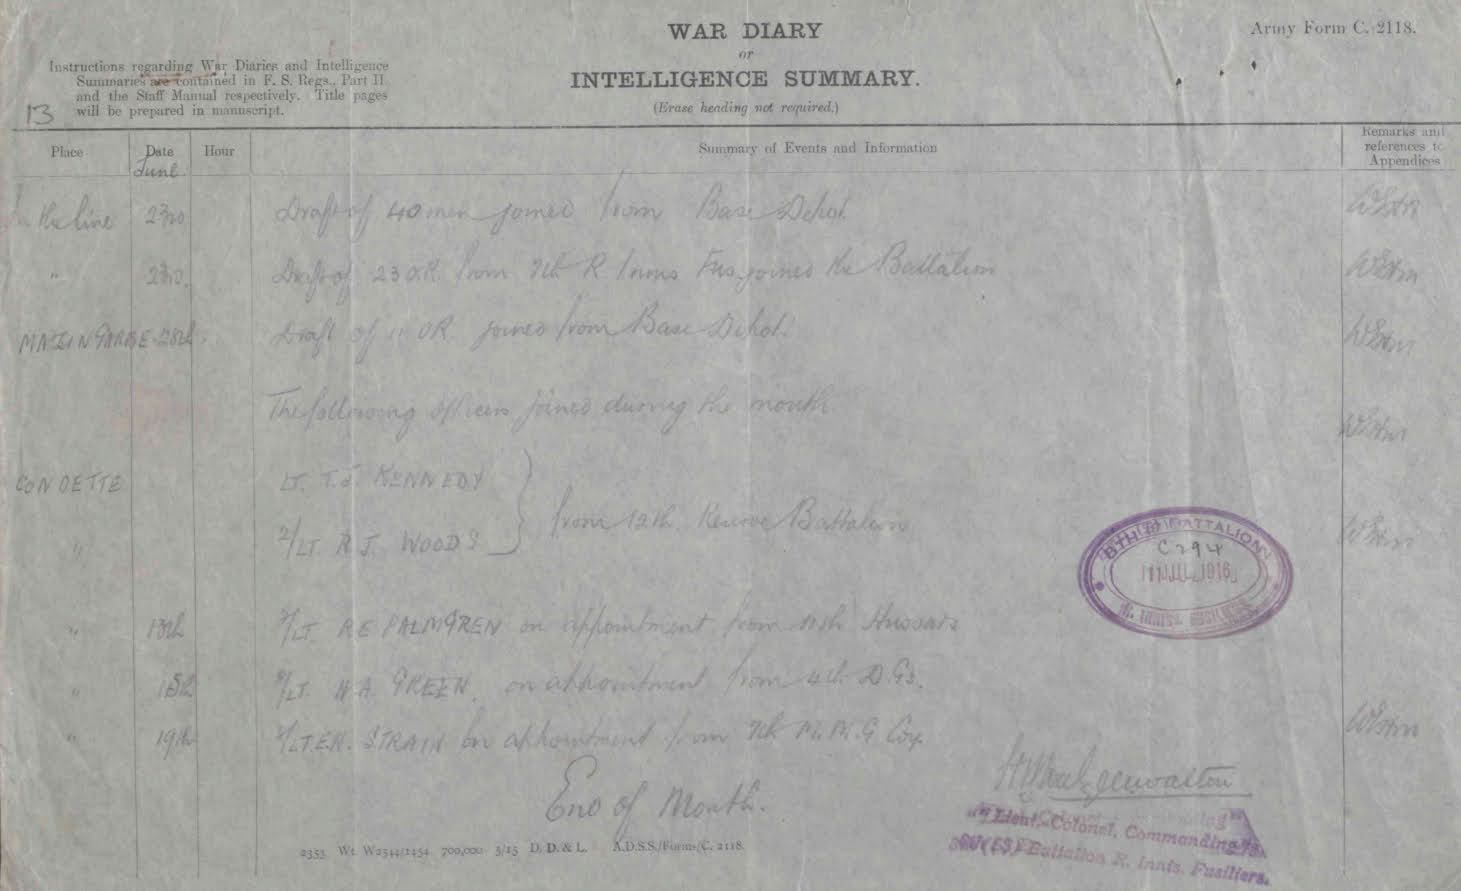 WAR DIARY
or
INTELLIGENCE SUMMARY.
(Erase heading not required.)
Army Form C. 2118.
Instructions regarding War Diaries and Intelligence
Summaries are contained in F. S. Regs., Part II
and the Staff Manual respectively. Title pages
will be prepared in manuscript.
13
Place Date Hour Summary of Events and Information Remarks and references to Appendices
June
In the line 23rd Draft of 40 men joined from Base Depot.
" 23rd. Draft of 23 O.R. from 7th R Innis Fus. joined the Battalion
28th. Draft of 11 OR. joined from Base Depot.
The following officers joined during the month
CONDETTE LT. T.J. KENNEDY
" 2/LT R.J. WOODS } from 12th Reserve Battalion
" 13th 2/LT. R E PALMGREN on appointment from 11th Hussars
" 15th 2/LT. H A. GREEN. on appointment from 4th D.Gs.
" 19th 2/LT. E.N. STRAIN on appointment from 7th M.M.G Coy
End of Month.
8TH (S) BATTALION
C294
1 JUL 1916
R. INNIS. FUSILIERS.
Lieut.-Colonel, Commanding
(S) Battalion R. Innis. Fusiliers.
2353 Wt. W2544/1454 700,000 5/15 D. D. & L. A.D.S.S./Forms/C. 2118.